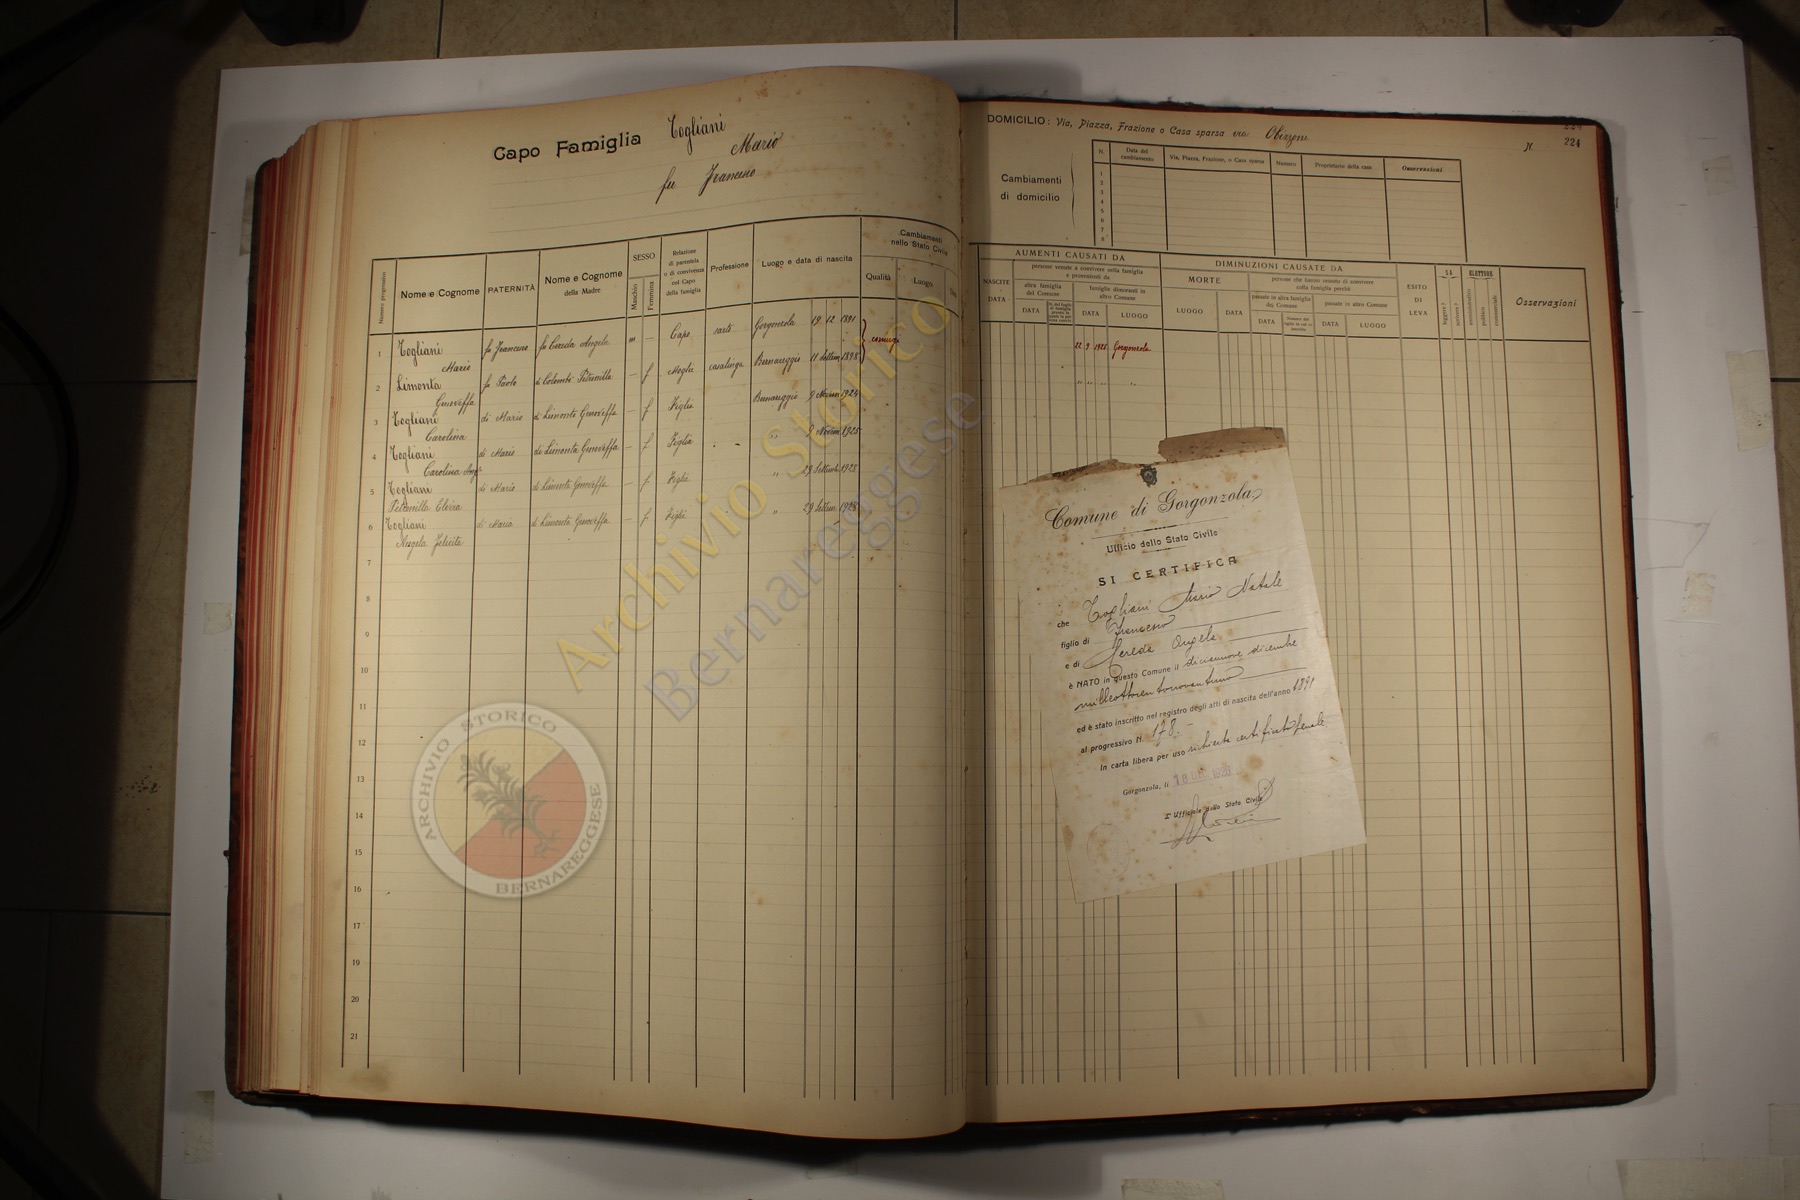 Capo Famiglia Togliani
Mario
fu Francesco
Numero progressivo
Nome e Cognome
PATERNITÀ
Nome e Cognome
della Madre
SESSO
Maschio
Femmina
Relazione
di parentela
o di convivenza
col Capo
della famiglia
Professione
Luogo e data di nascita
Cambiamenti
nello Stato Civile
Qualità
Luogo
1 Togliani Mario fu Francesco fu Cereda Angela m — Capo sarti Gorgonzola 19 12 1891 coniugi
2 Limonta Genoveffa fu Paolo di Colombi Petronilla — f Moglie casalinga Bernareggio 11 Settem 1898
3 Togliani Carolina di Mario di Limonta Genoveffa — f Figlia Bernareggio 1924
4 Togliani Carolina Ang. di Mario di Limonta Genoveffa — f Figlia " 9 Novem 1925
5 Togliani Petronilla di Mario di Limonta Genoveffa — f Figlia " 29 Settemb 1928
6 Togliani Angela Felicita di Mario di Limonta Genoveffa — f Figlia " 29 Settem 1928
7
8
9
10
11
12
13
14
15
16
17
18
19
20
21
DOMICILIO: Via, Piazza, Frazione o Casa sparsa via
N. 224
Cambiamenti
di domicilio
N.
Data del
cambiamento
Via, Piazza, Frazione, o Casa sparsa
Numero
Proprietario della casa
Osservazioni
1
2
3
4
5
6
7
8
AUMENTI CAUSATI DA
DIMINUZIONI CAUSATE DA
NASCITE
DATA
persone venute a convivere nella famiglia
e provenienti da
altra famiglia
del Comune
famiglie dimoranti in
altro Comune
DATA
DATA
LUOGO
MORTE
LUOGO
DATA
persone che hanno cessato di convivere
colla famiglia perchè
passate in altra famiglia
del Comune
passate in altro Comune
DATA
DATA
LUOGO
ESITO
DI
LEVA
SA
leggere?
scrivere?
ELETTORE
amministrativo
politico
commerciale
Osservazioni
22 9 1928 Gorgonzola
" " " "
Comune di Gorgonzola
Ufficio dello Stato Civile
SI CERTIFICA
che Togliani Mario Natale
figlio di Francesco
e di Cereda Angela
è NATO in questo Comune il diciannove dicembre
milleottocentonovantuno
ed è stato inscritto nel registro degli atti di nascita dell'anno 1891
al progressivo N. 178.
In carta libera per uso richiesta certificato penale
Gorgonzola, li 18 DIC. 1928
L'Ufficiale dello Stato Civile
Archivio Storico
Bernareggese
ARCHIVIO STORICO
BERNAREGGESE